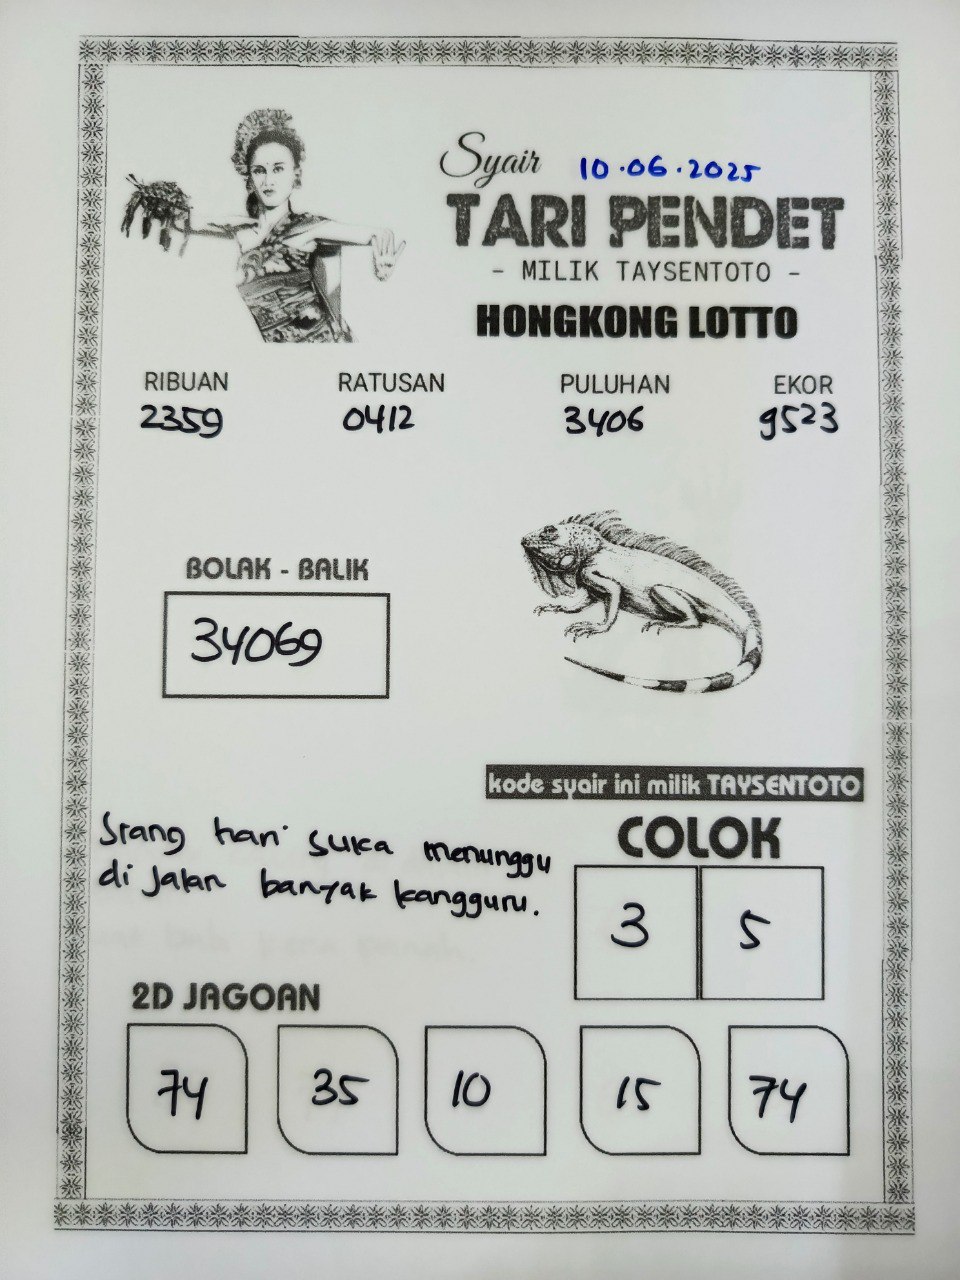 Syair 10.06.2025
TARI PENDET
- MILIK TAYSENTOTO -
HONGKONG LOTTO
RIBUAN RATUSAN PULUHAN EKOR
2359 0412 3406 9523
BOLAK - BALIK
34069
kode syair ini milik TAYSENTOTO
COLOK
3 5
Siang hari suka menunggu
di jalan banyak kangguru.
2D JAGOAN
74 35 10 15 74